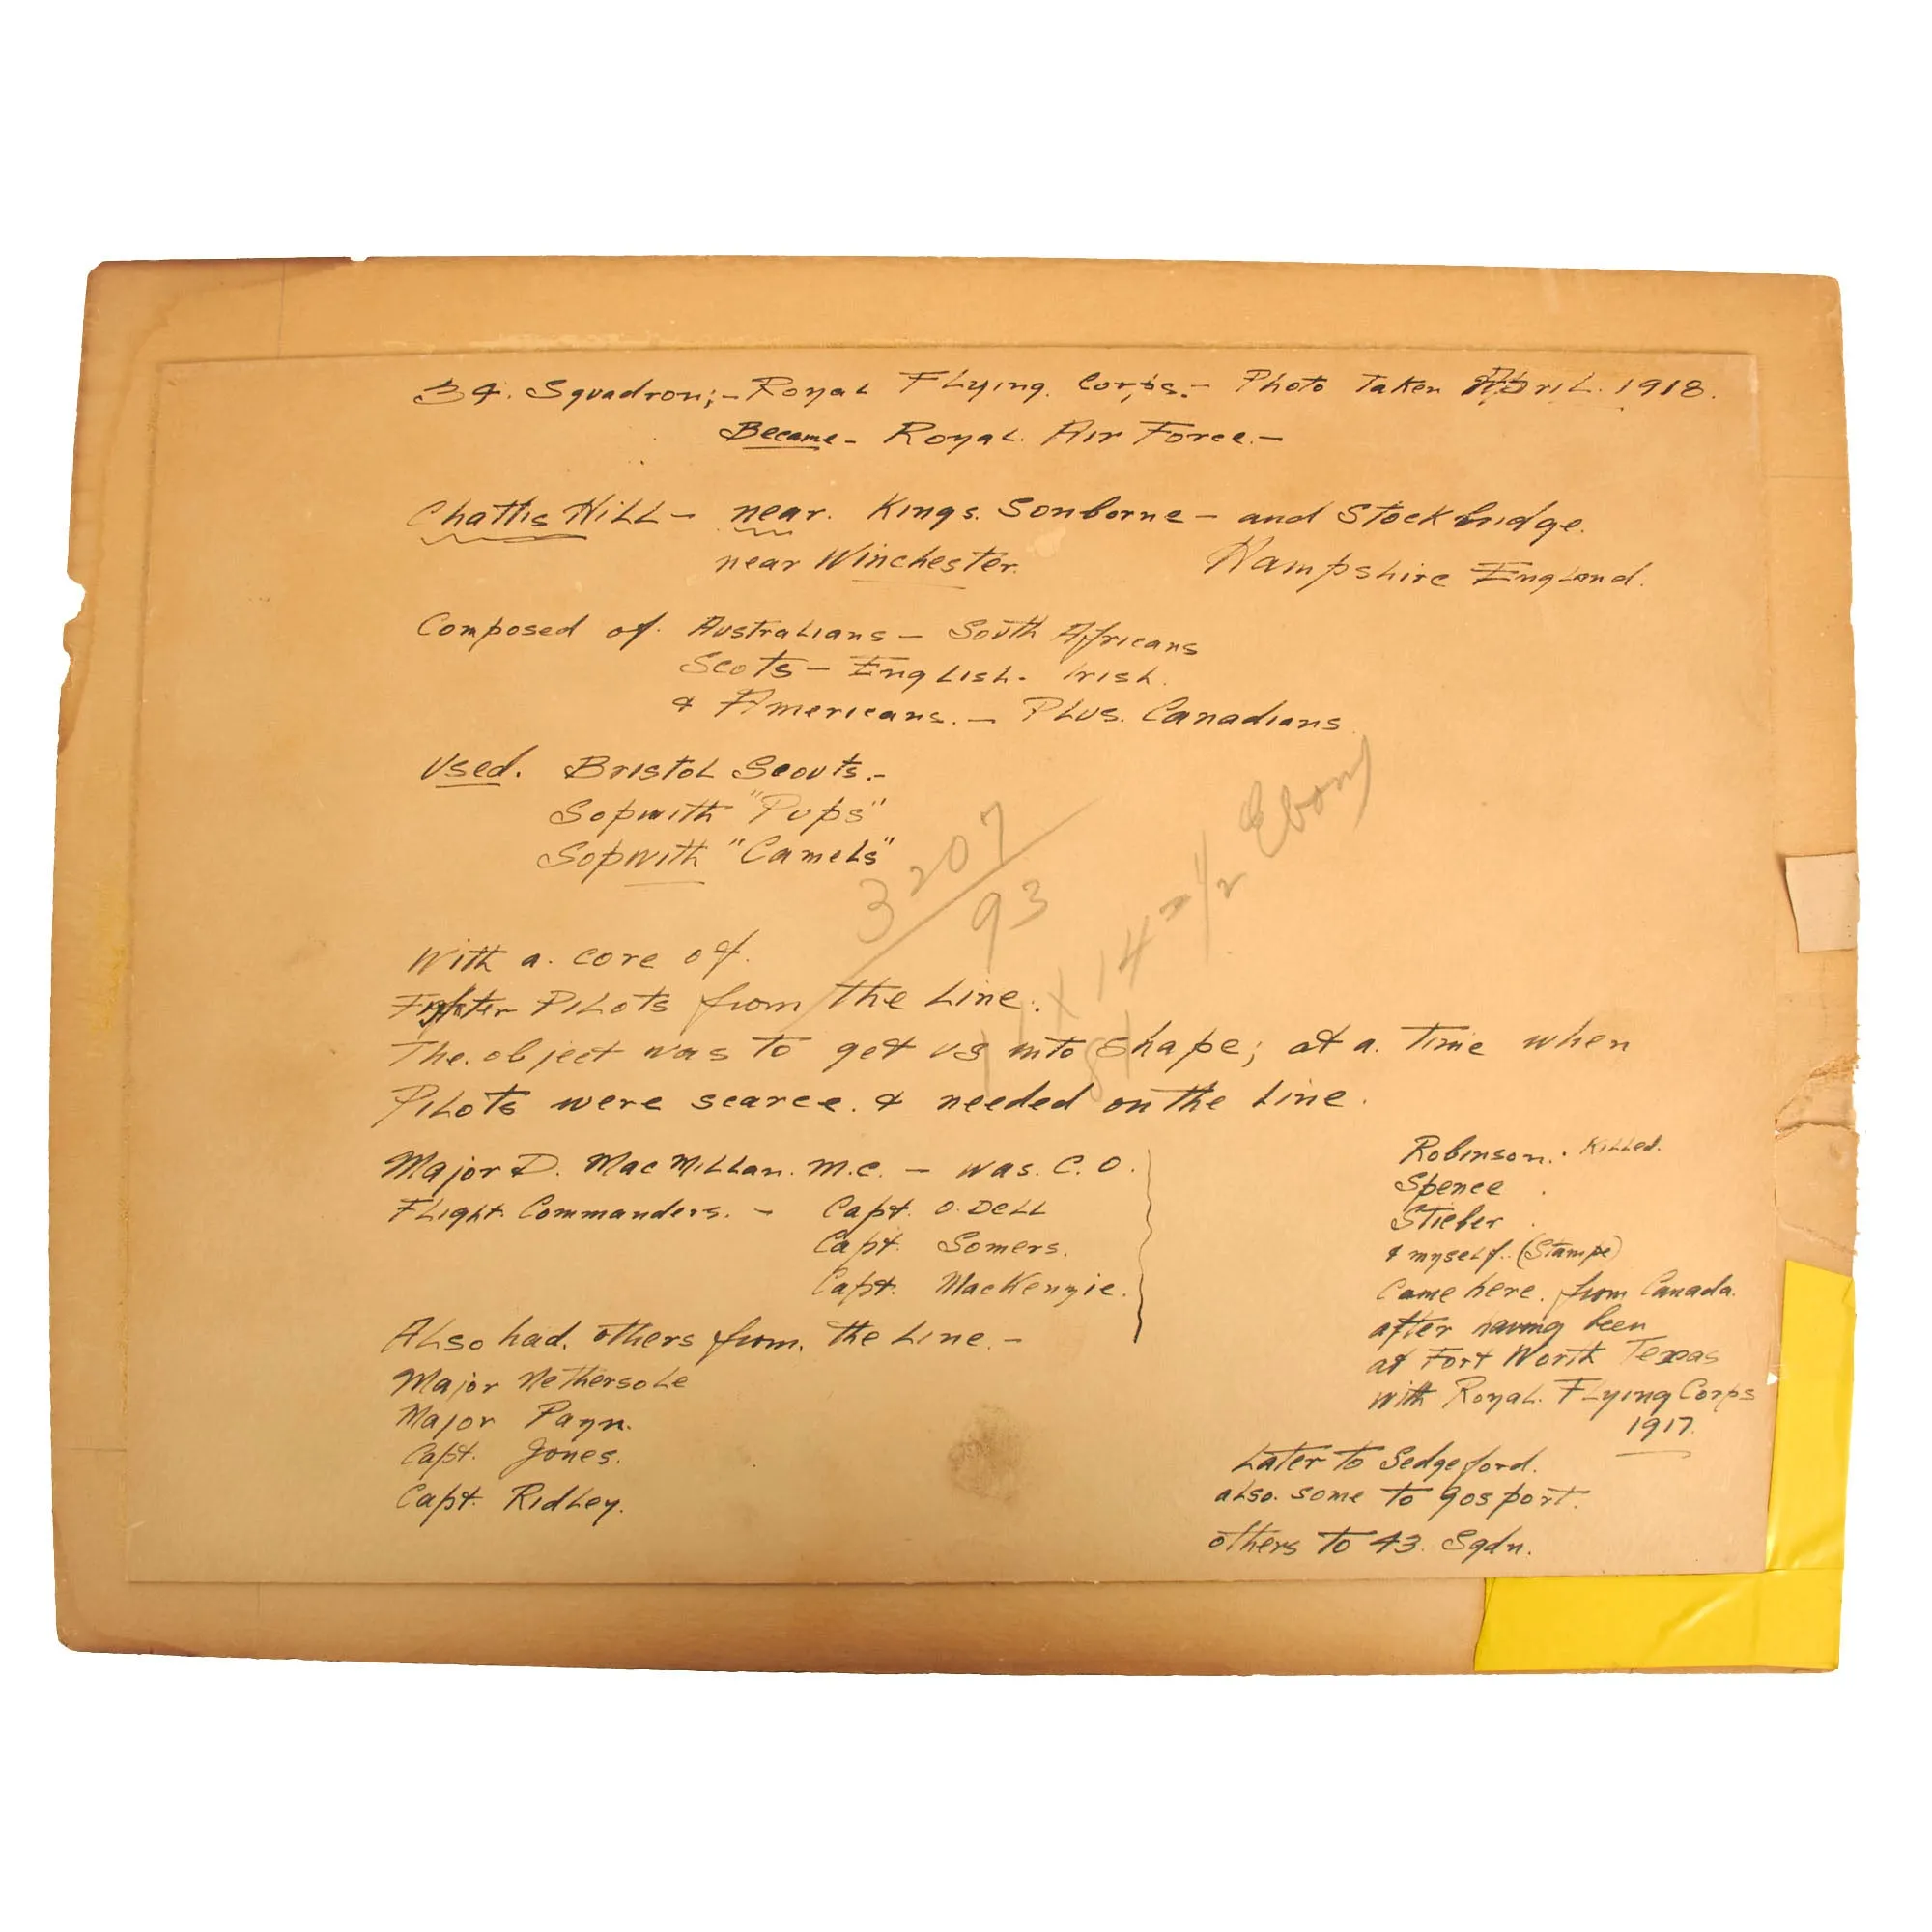 34. Squadron;- Royal Flying. Corps.- Photo Taken April. 1918.
Became - Royal. Air Force.-
Chattis Hill - near. Kings. Sonborne - and Stockbridge.
near Winchester. Hampshire England.
Composed of. Australians - South Africans
Scots - English. Irish.
& Americans. - Plus. Canadians
Used. Bristol Scouts.-
Sopwith "Pups"
Sopwith "Camels"
3207
93
14 1/2 Ebony
With a. core of.
Fighter Pilots from the Line.
The. object was to get us into shape; at a. Time when
Pilots were scarce. & needed on the Line.
Major D. MacMillan. M.C. - was. C.O.
Flight Commanders. - Capt. O.Dell
Capt. Somers.
Capt. MacKenzie.
Also had. others from. the Line. -
Major Nethersole
Major Payn.
Capt. Jones.
Capt. Ridley.
Robinson. Killed.
Spence
Stieber
& myself. (Stampe)
Came here. from Canada.
after having been
at Fort Worth Texas
with Royal. Flying Corps
1917.
Later to Sedgeford.
also. some to Gosport.
others to 43. Sqdn.